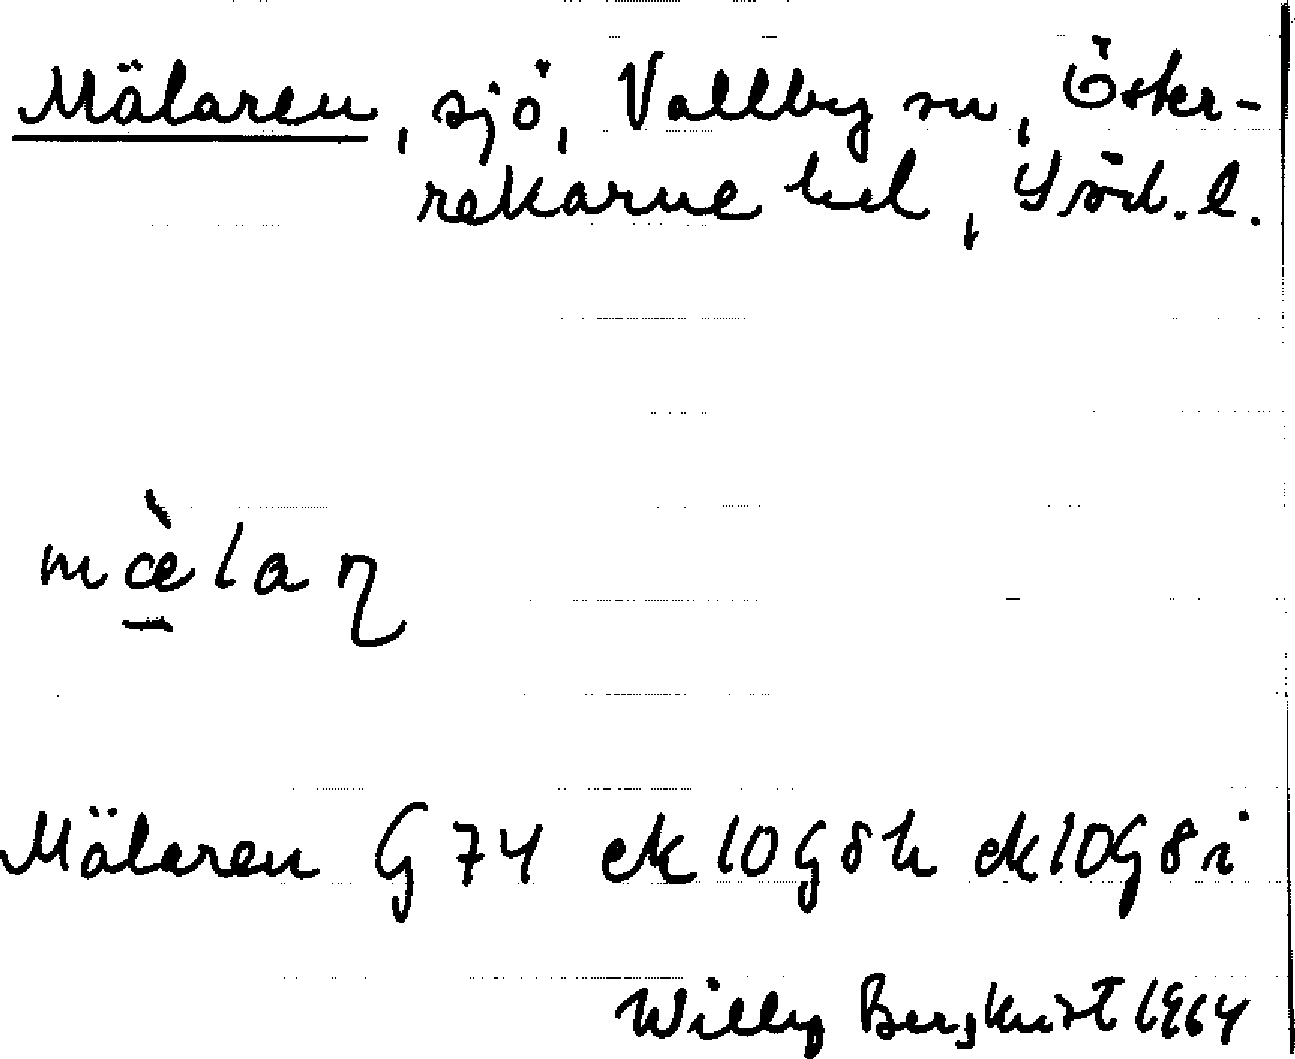 Mälaren, sjö, Vallby sn, Öster-
rekarne hd, Söd. l.
mæ̀laɳ
Mälaren G 74 ek 10G8h ek 10G8i
Willy Bergkvist 1964